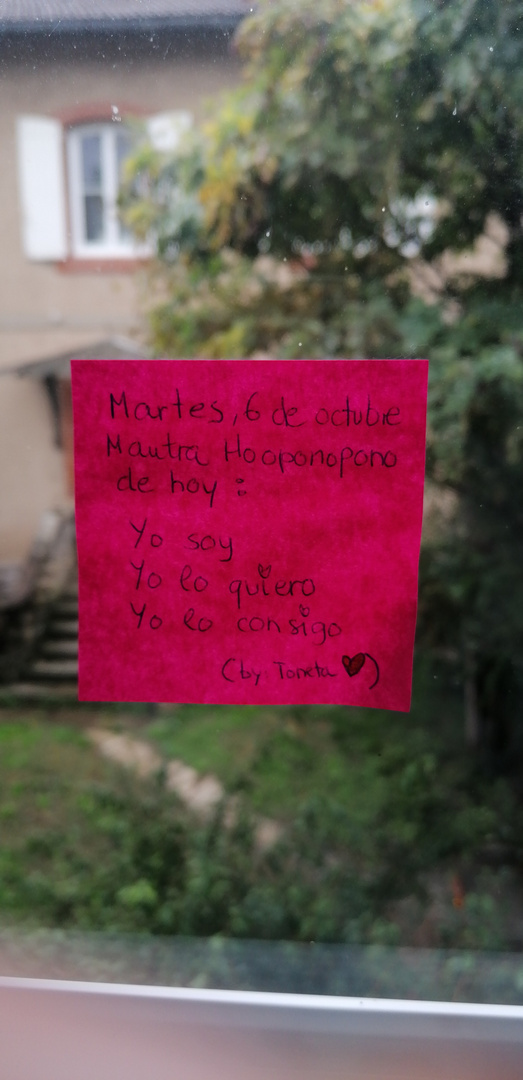 Martes, 6 de octubre
Mantra Hooponopono
de hoy :
Yo soy
Yo lo quiero
Yo lo consigo
(by: Toneta ♥)